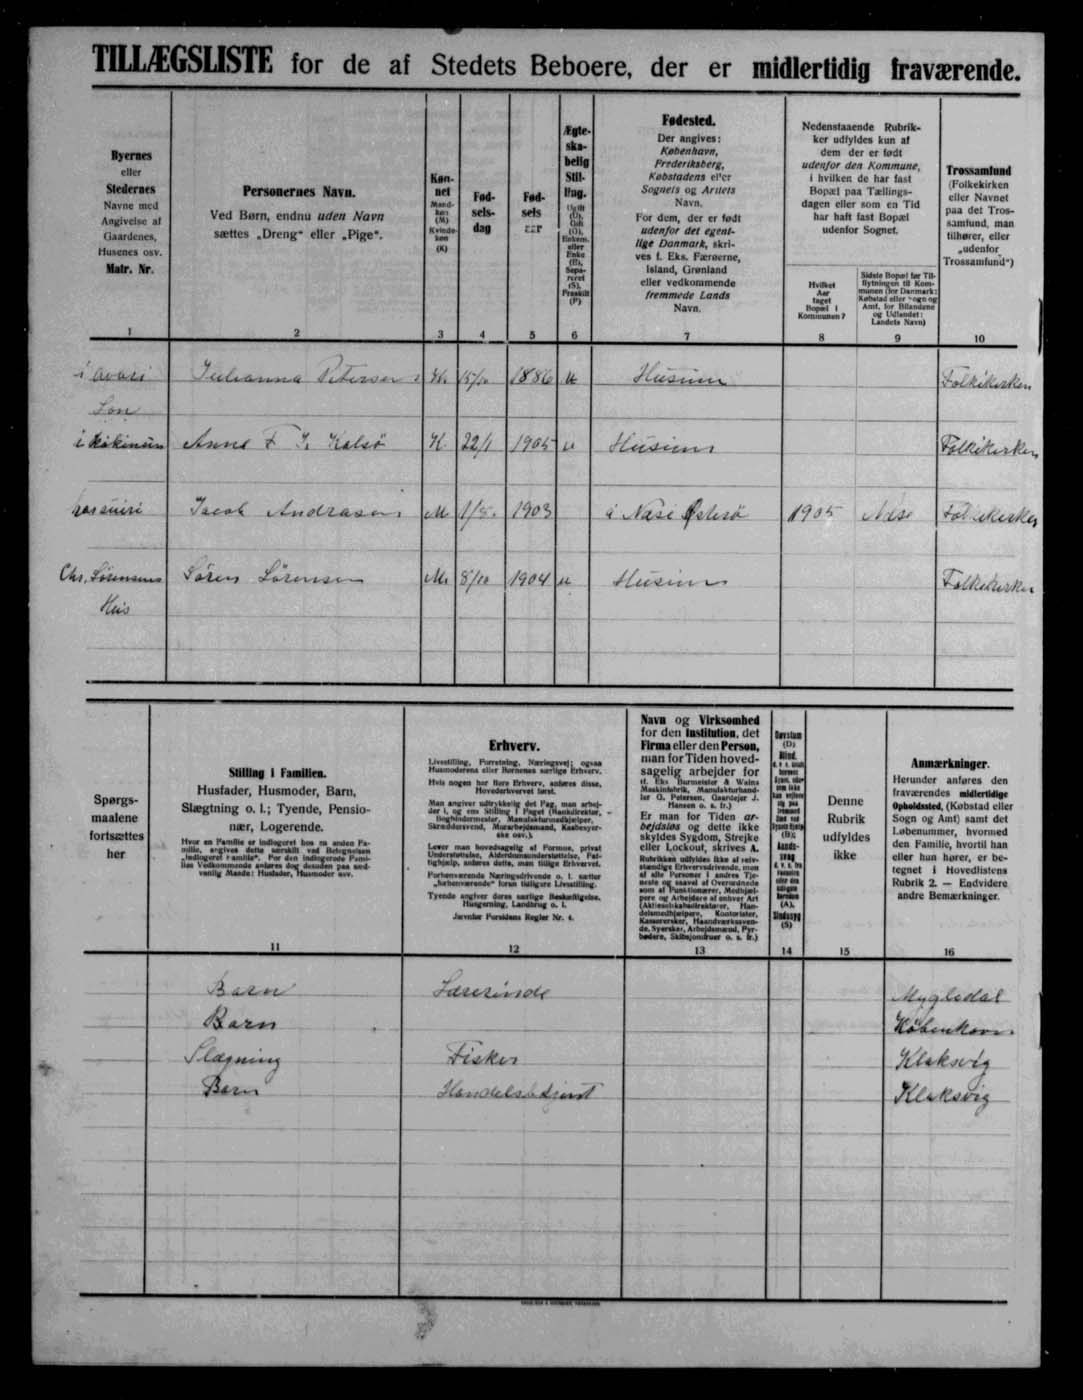 TILLÆGSLISTE for de af Stedets Beboere, der er midlertidig fraværende.
Byernes
eller
Stedernes
Navne med
Angivelse af
Gaardenes,
Husenes osv.
Matr. Nr.
1
Personernes Navn.
Ved Børn, endnu uden Navn
sættes „Dreng“ eller „Pige“.
2
Køn-
net
Mand-
køn
(M)
Kvinde-
køn
(K)
3
Fød-
sels-
dag
4
Fød-
sels
aar
5
Ægte-
ska-
belig
Stil-
ling.
Ugift
(U),
Gift
(G),
Enkem.
eller
Enke
(E),
Sepa-
reret
(S),
Fraskilt
(F)
6
Fødested.
Der angives:
København,
Frederiksberg,
Købstadens eller
Sognets og Amtets
Navn.
For dem, der er født
udenfor det egent-
lige Danmark, skri-
ves f. Eks. Færøerne,
Island, Grønland
eller vedkommende
fremmede Lands
Navn.
7
Nedenstaaende Rubrik-
ker udfyldes kun af
dem der er født
udenfor den Kommune,
i hvilken de har fast
Bopæl paa Tællings-
dagen eller som en Tid
har haft fast Bopæl
udenfor Sognet.
Hvilket
Aar
taget
Bopæl i
Kommunen?
8
Sidste Bopæl før Til-
flytningen til Kom-
munen (for Danmark:
Købstad eller Sogn og
Amt, for Bilandene
og Udlandet:
Landets Navn)
9
Trossamfund
(Folkekirken
eller Navnet
paa det Tros-
samfund, man
tilhører, eller
„udenfor
Trossamfund“)
10
Julianna Petersen K. 15/10 1886 u Husum Folkekirken
Anna F J. Kalsø K. 22/1 1905 u Husum Folkekirken
Jacob Andreasen M 1/8 1903 á Næsi Østerø 1905 Næse Folkekirken
Chr. Sørensens Søren Sørensen M. 8/10 1904 u Husum Folkekirken
Hus
Spørgs-
maalene
fortsættes
her
Stilling i Familien.
Husfader, Husmoder, Barn,
Slægtning o. l.; Tyende, Pensio-
nær, Logerende.
Hvor en Familie er indlogeret hos en anden Fa-
milie, angives dette særskilt ved Betegnelsen
„indlogeret Familie“. For den indlogerede Fami-
lies Vedkommende anføres dog desuden paa sæd-
vanlig Maade: Husfader, Husmoder osv.
11
Erhverv.
Livsstilling, Forretning, Næringsvej; ogsaa
Husmoderens eller Børnenes særlige Erhverv.
Hvis nogen har flere Erhverv, anføres disse,
Hovederhvervet først.
Man angiver udtrykkelig det Fag, man arbej-
der i, og ens Stilling i Faget (Bankdirektør,
Boghindermester, Manufakturmedhjælper,
Skræddersvend, Murarbejdsmand, Kassbesyer-
ske osv.).
Lever man hovedsagelig af Formue, privat
Understøttelse, Alderdomsunderstøttelse, Fat-
tighjælp, anføres dette, man tillige Erhvervet.
Forhenværende Næringsdrivende o. l. sætter
„forhenværende“ foran tidligere Livsstilling.
Tyende angiver deres særlige Beskæftigelse,
Husgerning, Landbrug o. l.
Jævnfør Forsidens Regler Nr. 4.
12
Navn og Virksomhed
for den Institution, det
Firma eller den Person,
man for Tiden hoved-
sagelig arbejder for
(f. Eks. Burmeister & Wains
Maskinfabrik, Manufakturhand-
ler G. Petersen, Gaardejer J.
Hansen o. s. fr.)
Er man for Tiden ar-
bejdsløs og dette ikke
skyldes Sygdom, Strejke
eller Lockout, skrives A.
Rubrikken udfyldes ikke af selv-
stændige Erhvervsdrivende, men
af alle Personer i andres Tje-
neste og saavel af Overordnede
som af Funktionærer, Medhjæl-
pere og Arbejdere af enhver Art
(Aktieselskabsdirektører, Han-
delsmedhjælpere, Kontorister,
Kasserersker, Haandværkssven-
de, Syersker, Arbejdsmænd, Fyr-
bødere, Skibsjomfruer o. s. fr.)
13
Døvstum
(D)
Blind,
(B);
Aands-
svag
(A),
Sindssyg
(S)
14
Denne
Rubrik
udfyldes
ikke
15
Anmærkninger.
Herunder anføres den
fraværendes midlertidige
Opholdssted, (Købstad eller
Sogn og Amt) samt det
Løbenummer, hvormed
den Familie, hvortil han
eller hun hører, er be-
tegnet i Hovedlistens
Rubrik 2. — Endvidere
andre Bemærkninger.
16
Barn Lærerinde Mygledal
Barn København
Slægning Fisker Klaksvig
Barn Handelsbetjent Klaksvig